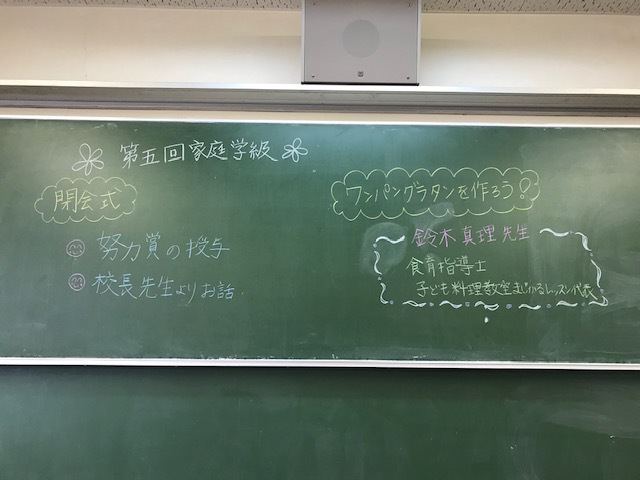 第五回家庭学級
閉会式
努力賞の授与
校長先生よりお話
ワンパングラタンを作ろう!
鈴木真理先生
食育指導士
子ども料理教室まじかるレッスン代表